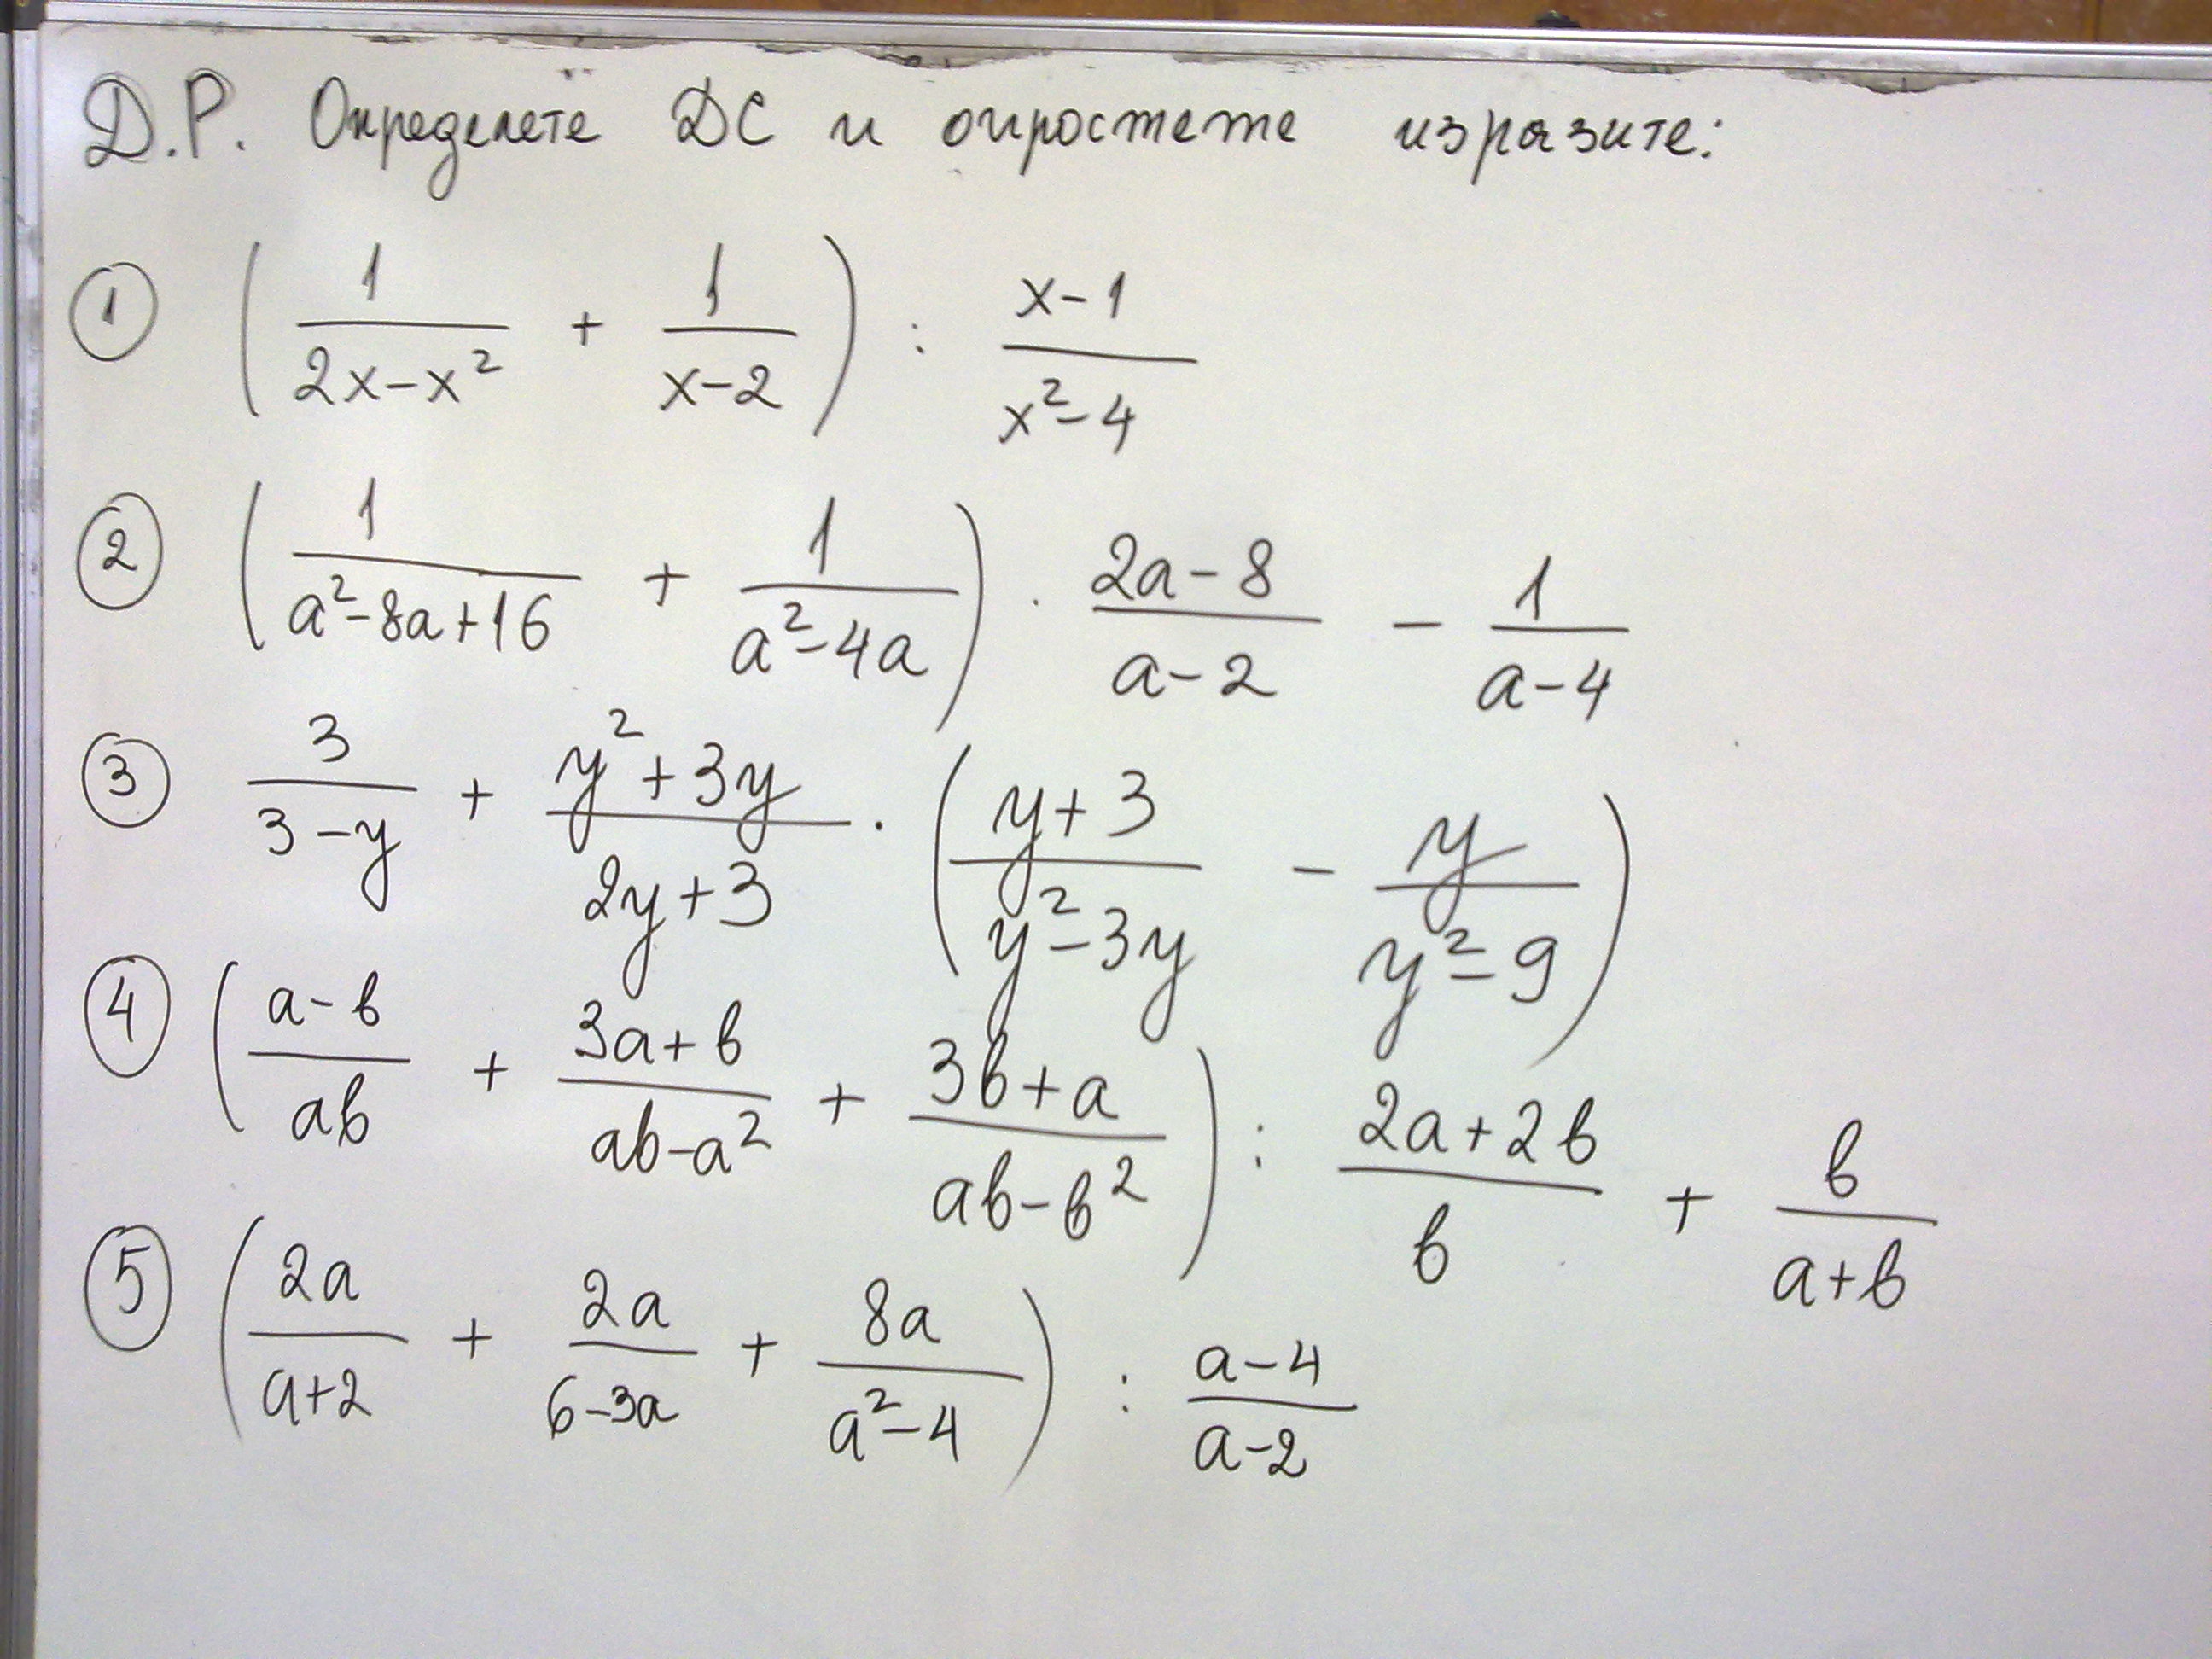 Д.Р. Определете ДС и опростете изразите:
① (1/(2x-x²) + 1/(x-2)) : (x-1)/(x²-4)
② (1/(a²-8a+16) + 1/(a²-4a)) · (2a-8)/(a-2) - 1/(a-4)
③ 3/(3-y) + (y²+3y)/(2y+3) · ((y+3)/(y²-3y) - y/(y²-9))
④ ((a-в)/(aв) + (3a+в)/(aв-a²) + (3в+a)/(aв-в²)) : (2a+2в)/в + в/(a+в)
⑤ (2a/(a+2) + 2a/(6-3a) + 8a/(a²-4)) : (a-4)/(a-2)